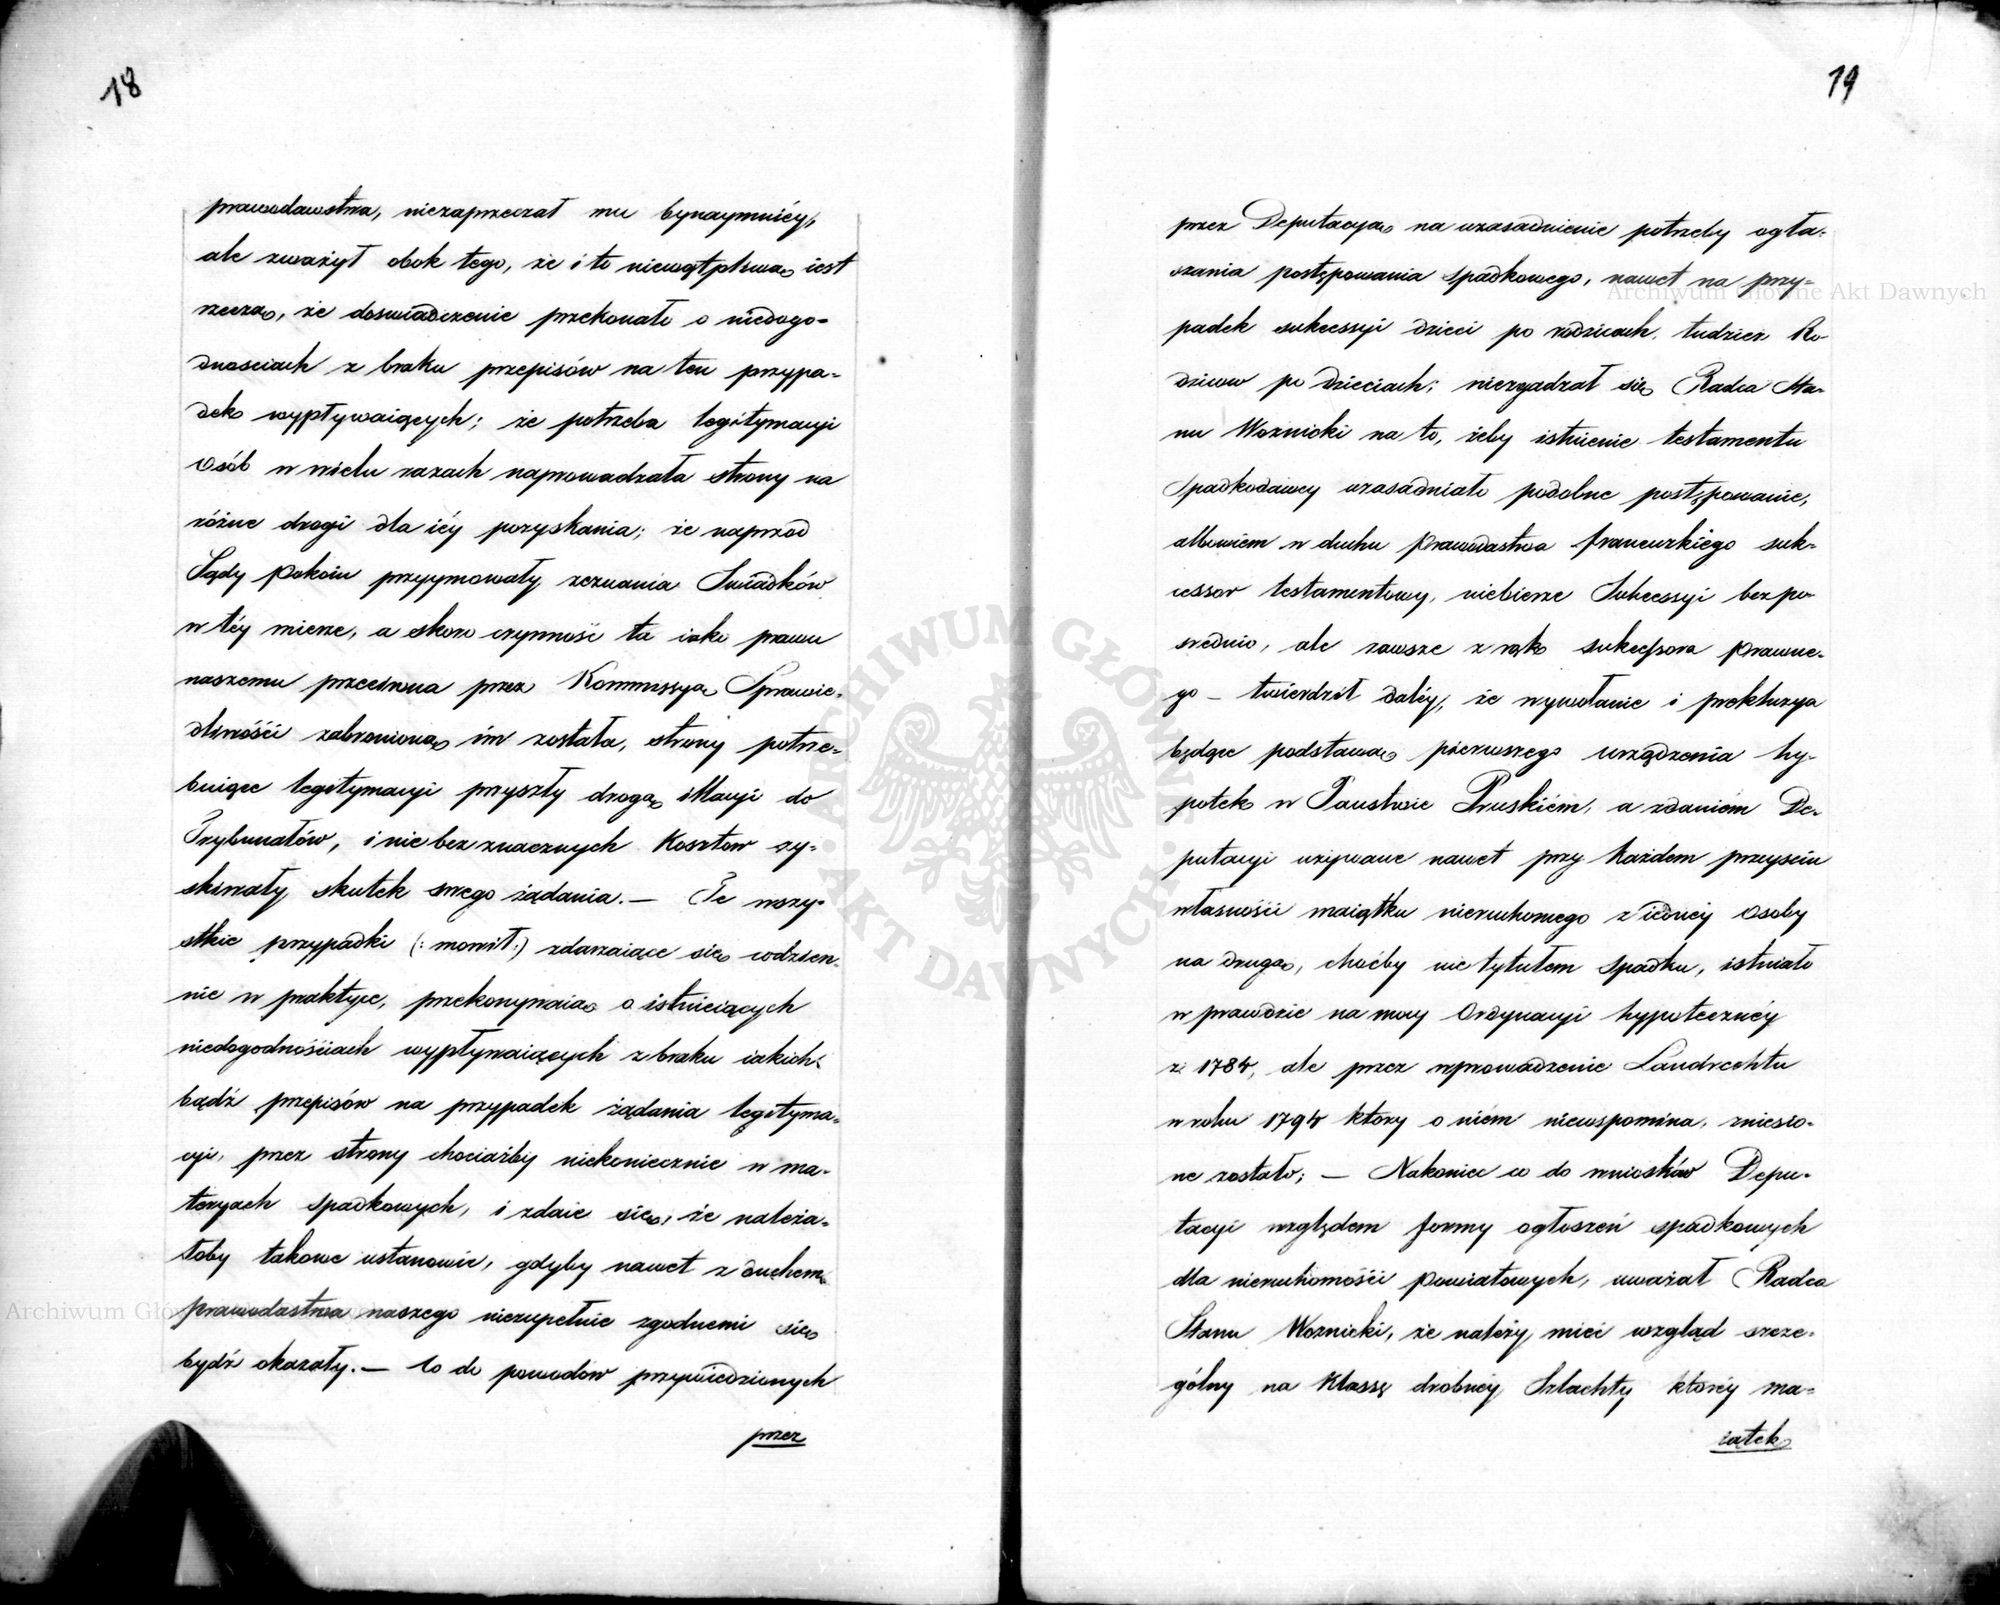 18
prawodawstwa, niezaprzeczał mu bynaymniéy,
ale zważył obok tego, że i to niewątpliwą iest
rzeczą, że doswiadczenie przekonało o niedogo=
dnosciach z braku przepisów na ten przypa=
dek wypływaiących; że potrzeba legitymacyi
Osób w wielu razach naprowadzała strony na
różne drogi dla iéy pozyskania; że naprzod
Sądy Pokoiu przyymowały zeznania Swiadków
w téy mierze, a skoro czynność ta iako prawu
naszemu przeciwna przez Kommissyą Sprawie=
dliwości zabronioną im została, strony potrze=
buiące legitymacyi przyszły drogą illacyi do
Trybunałów, i nie bez znacznych Kosztow zy=
skiwały skutek swego żądania. — Te wszy=
stkie przypadki (: mowił:) zdarzaiące się codzien=
nie w praktyce, przekonywaią o istnieiących
niedogodnościach wypływaiących z braku iakich=
bądź przepisów na przypadek żądania legityma=
cyi, przez strony chociażby niekoniecznie w ma=
teryach spadkowych, i zdaie się, że należa=
łoby takowe ustanowić, gdyby nawet z duchem
prawodastwa naszego niezupełnie zgodnemi się
bydź okazały. — Co do powodow przywiedzionych
przez
19
przez Deputacyą na uzasadnienie potrzeby ogła=
szania postępowania spadkowego, nawet na przy=
padek sukcessyi dzieci po rodzicach, tudzież Ro=
dziców po dzieciach; niezgadzał się Radca Sta=
nu Woznicki na to, żeby istnienie testamentu
Spadkodawcy uzasadniało podobne postępowanie,
albowiem w duchu Prawodastwa francuzkiego suk=
cessor testamentowy, niebierze Sukcessyi bezpo=
srednio, ale zawsze z rąk sukcessora prawne=
go — twierdził daléy, że wywołanie i prekluzya
będące podstawą pierwszego urządzenia hy=
potek w Panstwie Pruskiém, a zdaniem De=
putacyi używane nawet przy Każdem przeysciu
własności maiątku nieruchomego z iednéy Osoby
na drugą, choćby nie tytułem spadku, istniało
w prawdzie na mocy Ordynacyi hypoteczney
z 1784, ale przez wprowadzenie Landrechtu
w roku 1794 który o niém niewspomina, zniesio=
ne zostało; — Nakoniec co do wniosków Depu=
tacyi względem formy ogłoszeń spadkowych
dla nieruchomości Powiatowych, uważał Radca
Stanu Woznicki, że należy mieć wzgląd szcze=
gólny na Klassę drobnéy Szlachty któréy ma=
iątek
ARCHIWUM GŁÓWNE AKT DAWNYCH
Archiwum Główne Akt Dawnych
Archiwum Główne Akt Dawnych